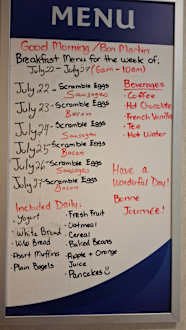 MENU
Good Morning / Bon Martin
Breakfast Menu for the week of:
July 22 - July 27 (6am - 10am)
July 22 - Scramble Eggs
Sausages
July 23 - Scramble Eggs
Bacon
July 24 - Scramble Eggs
Sausages
July 25 - Scramble Eggs
Bacon
July 26 - Scramble Eggs
Sausages
July 27 - Scramble Eggs
Bacon
Beverages
- Coffee
- Hot Chocolate
- French Vanilla
- Tea
- Hot Water
Have a
Wonderful Day!
Bonne
Journée!
Included Daily:
- Yogurt
- White Bread
- Whole Bread
- Asort Muffins
- Plain Bagels
- Fresh Fruit
- Oatmeal
- Cereal
- Baked Beans
- Apple + Orange
Juice
- Pancakes